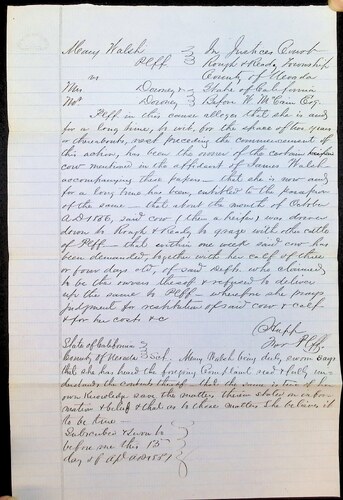 Mary Walsh In Justices Court
Plff Rough & Ready Township
vs County of Nevada
Mrs Downey & State of California
Mr Downey Before W. McCain Esq.
Plff in this cause alleges that she is and
for a long time, to wit, for the space of ten years
or thereabouts, next preceding the commencement of
this action, has been the owner of the certain
cow mentioned in the affidavit of James Walsh
accompanying these papers - that she is now and
for a long time has been, entitled to the possession
of the same - that about the month of October
A.D. 1886, said cow (then a heifer) was driven
down to Rough & Ready to graze with other cattle
of Plff - that within one week said cow has
been demanded, together with her calf of three
or four days old, of said Defts. who claimed
to be the owners thereof & refused to deliver
up the same to Plff - wherefore she prays
judgment for restitution of said cow & calf
& for her costs &c
for Plff.
State of California
County of Nevada
Mary Walsh being duly sworn says
that she has heard the foregoing Complaint read & fully un-
derstands the contents thereof - that the same is true of her
own knowledge save the matters therein stated on infor-
mation & belief & that as to these matters she believes it
to be true -
Subscribed & sworn to
before me this 15
day of